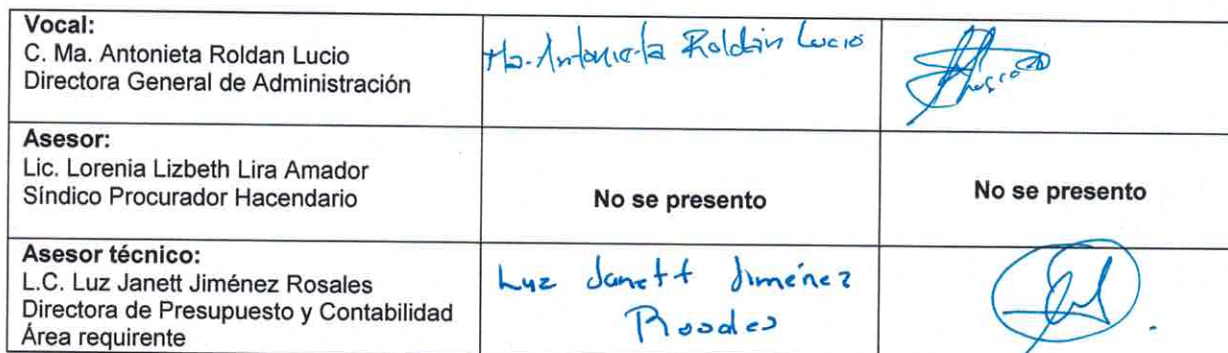 Vocal:
C. Ma. Antonieta Roldan Lucio
Directora General de Administración
Ma. Antonieta Roldán Lucio
Lucio
Asesor:
Lic. Lorenia Lizbeth Lira Amador
Síndico Procurador Hacendario
No se presento
No se presento
Asesor técnico:
L.C. Luz Janett Jiménez Rosales
Directora de Presupuesto y Contabilidad
Área requirente
Luz Janett Jiménez
Rosales